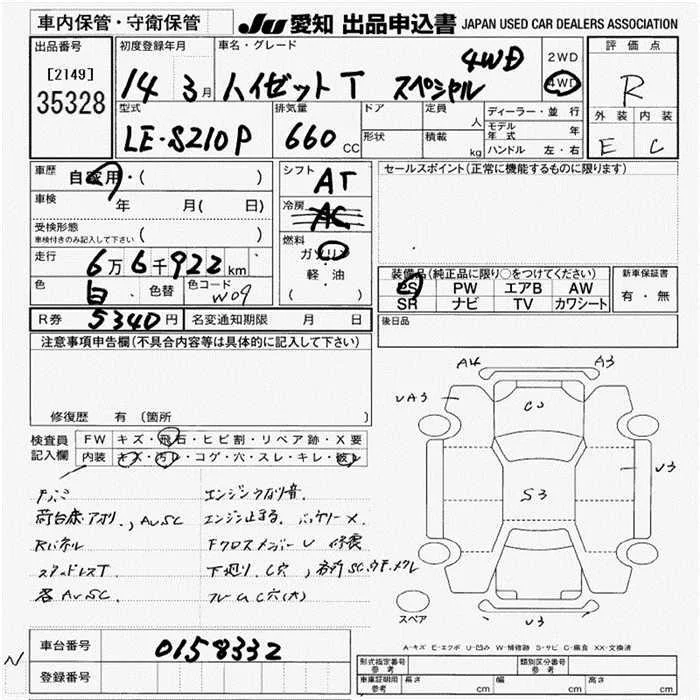 車内保管・守衛保管
JU 愛知 出品申込書 JAPAN USED CAR DEALERS ASSOCIATION
出品番号
[2149]
35328
初度登録年月
14 3月
車名・グレード
ハイゼットT スペシャル 4WD
2WD
4WD
評価点
R
外装 内装
E C
型式
LE-S210P
排気量
660 CC
ドア
形状
定員
人
積載
kg
ディーラー・並行
モデル年式 年
ハンドル 左・右
車歴
自家用・( )
車検 年 月( 日)
受検形態
車検付きのみ記入して下さい ( )
走行
6万6千922 km
色 白 色替 色コード W09
R券 5340円 名変通知期限 月 日
シフト
AT
冷房
AC
燃料
ガソリン
・
軽油
( )
セールスポイント(正常に機能するものに限ります)
装備品(純正品に限り○をつけてください)
PS PW エアB AW
SR ナビ TV カワシート
新車保証書
有・無
後日品
注意事項申告欄(不具合内容等は具体的に記入して下さい)
修復歴 有 (箇所
検査員
記入欄
FW キズ・飛石・ヒビ割・リペア跡・X要
内装 キズ・汚レ・コゲ・穴・スレ・キレ・破レ
荷台床アオリ、AUSC
Rパネル
スタッドレスT
各AUSC.
エンジンウナリ音.
エンジン止まる. バッテリーX.
FクロスメンバーU 修復
下廻り.C穴
フレームC穴(大)
A4 A3
UA3
C3
S3
U3
U3
スペア
A-キズ E-エクボ U-凹み W-補修跡 S-サビ C-腐食 XX-交換済
N
車台番号 0158332
登録番号
形式指定番号 参考
類別区分番号 参考
車庫証明用 参考
長さ cm 幅 cm 高さ cm